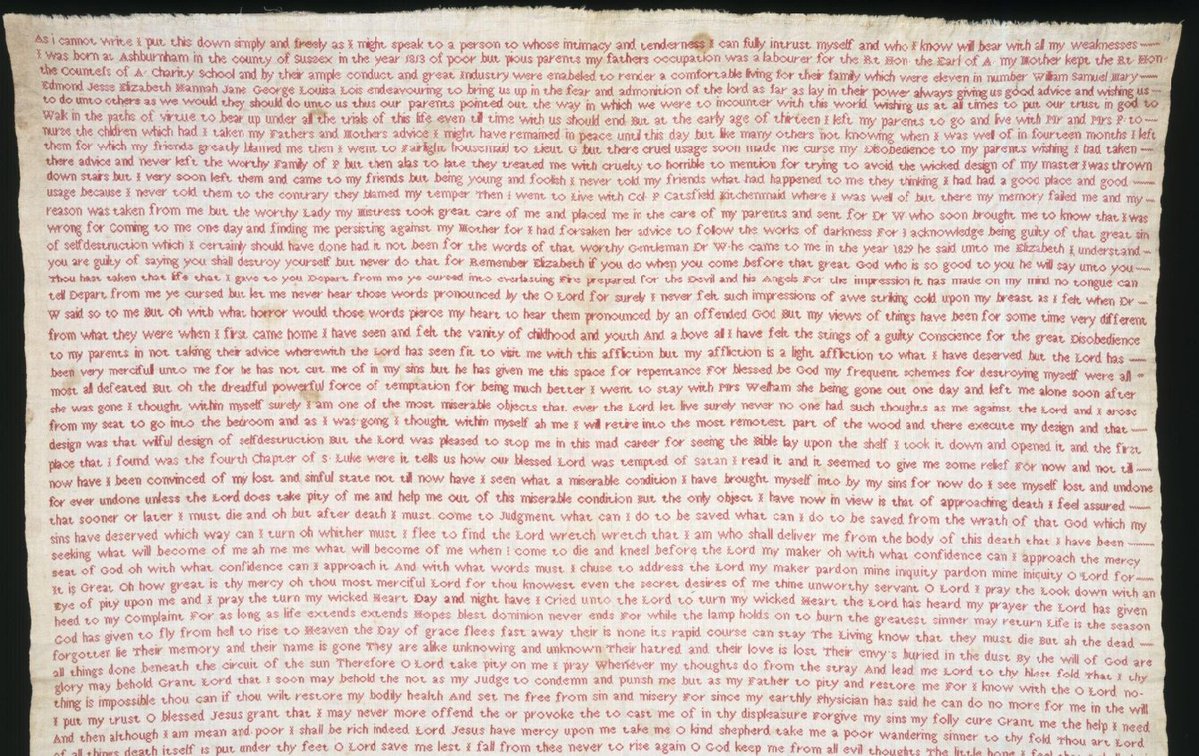 As i cannot write I put this down simply and freely as I might speak to a person to whose intimacy and tenderness I can fully intrust myself and who I know will bear with all my weaknesses
I was born at Ashburnham in the county of Sussex in the year 1813 of poor but pious parents my fathers occupation was a labourer for the Rt Hon the Earl of A my Mother kept the Rt Hon
the Countess of A Charity School and by their ample conduct and great Industry were enabeled to render a comfortable living for their family which were eleven in number William Samuel Mary
Edmond Jesse Elizabeth Hannah Jane George Louisa Lois endeavouring to bring us up in the fear and admonition of the lord as far as lay in their power always giving us good advice and wishing us
to do unto others as we would they should do unto us thus our parents pointed out the way in which we were to incounter with this world wishing us at all times to put our trust in god to
Walk in the paths of virtue to bear up under all the trials of this life even till time with us should end But at the early age of thirteen I left my parents to go and live with Mr and Mrs P to
nurse the children which had I taken my Fathers and Mothers advice I might have remained in peace until this day but like many others not knowing when I was well of in fourteen months I left
them for which my friends greatly blamed me then I went to Fairlight housemaid to Lieut G but there cruel usage soon made me curse my Disobedience to my parents wishing I had taken
there advice and never left the worthy Family of P but then alas to late they treated me with cruelty to horrible to mention for trying to avoid the wicked design of my master I was thrown
down stairs but I very soon left them and came to my friends but being young and foolish I never told my friends what had happened to me they thinking I had had a good place and good
usage because I never told them to the contrary they blamed my temper Then I went to Live with Col P Catsfield Kitchenmaid where I was well of but there my memory failed me and my
reason was taken from me but the worthy Lady my Mistress took great care of me and placed me in the care of my parents and sent for Dr W who soon brought me to know that I was
wrong for Coming to me one day and finding me persisting against my Mother for I had forsaken her advice to follow the works of darkness For I acknowledge being guilty of that great sin
of selfdestruction which I certainly should have done had it not been for the words of that worthy Gentleman Dr W he came to me in the year 1829 he said unto me Elizabeth I understand
you are guilty of saying you shall destroy yourself but never do that for Remember Elizabeth if you do when you come before that great God who is so good to you he will say unto you
Thou hast taken that life that I gave to you Depart from me ye cursed into everlasting Fire prepared for the Devil and his Angels For the impression it has made on my mind no tongue can
tell Depart from me ye cursed but let me never hear those words pronounced by the O Lord for surely I never felt such impressions of awe striking cold upon my breast as I felt when Dr
W said so to me But oh with what horror would those words pierce my heart to hear them pronounced by an offended God But my views of things have been for some time very different
from what they were when I first came home I have seen and felt the vanity of childhood and youth And a bove all I have felt the stings of a guilty Conscience for the great Disobedience
to my parents in not taking their advice wherewith the Lord has seen fit to visit me with this affliction but my affliction is a light affliction to what I have deserved but the Lord has
been very merciful unto me for he has not cut me of in my sins but he has given me this space for repentance For blessed be God my frequent schemes for destroying myself were all
most all defeated But oh the dreadful powerful force of temptation for being much better I went to stay with Mrs Welham she being gone out one day and left me alone soon after
she was gone I thought within myself surely I am one of the most miserable objects that ever the Lord let live surely never no one had such thoughts as me against the Lord and I arose
from my seat to go into the bedroom and as I was going I thought within myself ah me I will retire into the most remotest part of the wood and there execute my design and that
design was that wilful design of selfdestruction But the Lord was pleased to stop me in this mad career for seeing the Bible lay upon the shelf I took it down and opened it and the first
place that I found was the fourth Chapter of S. Luke were it tells us how our blessed Lord was tempted of Satan I read it and it seemed to give me some relief For now and not till
now have I been convinced of my lost and sinful state not till now have I seen what a miserable condition I have brought myself into by my sins for now do I see myself lost and undone
for ever undone unless the Lord does take pity of me and help me out of this miserable condition But the only object I have now in view is that of approaching death I feel assured
that sooner or later I must die and oh but after death I must come to Judgment what can I do to be saved what can I do to be saved from the wrath of that God which my
sins have deserved which way can I turn oh whither must I flee to find the Lord wretch wretch that I am who shall deliver me from the body of this death that I have been
seeking what will become of me ah me me what will become of me when I come to die and kneel before the Lord my maker oh with what confidence can I approach the mercy
seat of God oh with what confidence can I approach it And with what words must I chuse to address the Lord my maker pardon mine inquity pardon mine iniquity O Lord for
It is Great Oh how great is thy mercy oh thou most merciful Lord for thou knowest even the secret desires of me thine unworthy servant O Lord I pray the Look down with an
Eye of pity upon me and I pray the turn my wicked Heart Day and night have I Cried unto the Lord to turn my wicked Heart the Lord has heard my prayer the Lord has given
heed to my Complaint For as long as life extends extends Hopes blest dominion never ends For while the lamp holds on to burn the greatest sinner may return Life is the season
God has given to fly from hell to rise to Heaven the Day of grace flees fast away their is none its rapid course can stay The Living know that they must die But ah the dead
forgotten lie Their memory and their name is gone They are alike unknowing and unknown Their hatred and their love is lost Their envy's buried in the dust By the will of God are
all things done beneath the circuit of the sun Therefore O Lord take pity on me I pray Whenever my thoughts do from the stray And lead me Lord to thy blest fold That I thy
glory may behold Grant Lord that I soon may behold the not as my Judge to condemn and punish me but as my Father to pity and restore me For I know with the O Lord no-
thing is impossible thou can if thou wilt restore my bodily health And set me free from sin and misery For since my earthly Physician has said he can do no more for me in the will
I put my trust O blessed Jesus grant that I may never more offend the or provoke the to cast me of in thy displeasure Forgive my sins my folly cure Grant me the help I need
And then although I am mean and poor I shall be rich indeed Lord Jesus have mercy upon me take me O kind shepherd take me a poor wandering sinner to thy fold Thou art Lord
of all things death itself is put under thy feet O Lord save me lest I fall from thee never to rise again O God keep me from all evil thoughts The little hope I feel